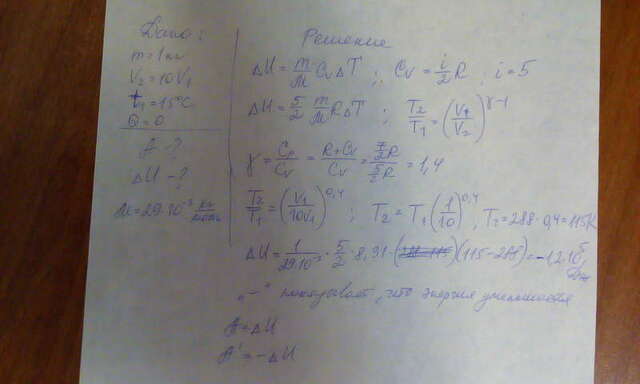 Дано:
m = 1 кг
V₂ = 10V₁
t₁ = 15°C
Q = 0
A - ?
ΔU - ?
M = 29·10⁻³ кг/моль
Решение
ΔU = m/M C_V ΔT ; C_V = i/2 R , i = 5
ΔU = 5/2 m/M R ΔT ; T₂/T₁ = (V₁/V₂)^(γ-1)
γ = C_p/C_V = (R + C_V)/C_V = (7/2 R)/(5/2 R) = 1,4
T₂/T₁ = (V₁/10V₁)^0,4 ; T₂ = T₁(1/10)^0,4 , T₂ = 288·0,4 = 115K
ΔU = 1/(29·10⁻³) · 5/2 · 8,31 · (115 - 288) = -1,2·10⁵ Дж
„-" показывает, что энергия уменьшается
A = ΔU
A' = -ΔU